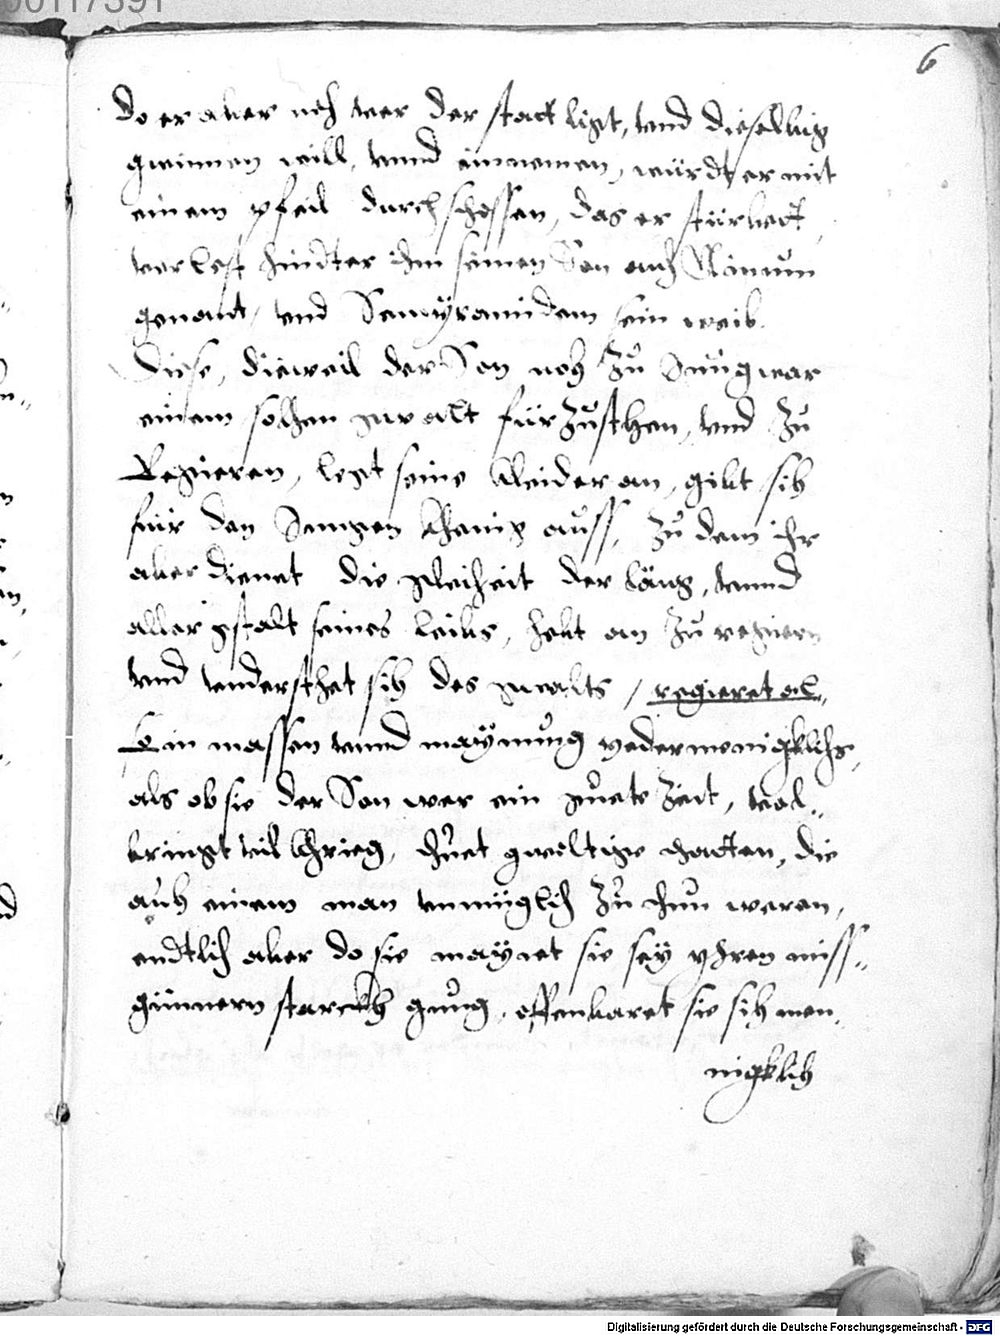 00117391
6
Do er aber noch vor der statt ligt, vnd dieselbig
gwinnen will, vnnd einnemen, würdt er mit
einem pfeil durchschossen, das er stürbet,
verlest hindter ihm seinen Son auch Ninum
genant, vnd Semyramidem sein weib.
Diese, dieweil der Son noch zu Jung war
einem solhen gwalt fürzusthen, vnd zu
Regieren, legt seine Kleider an, gibt sich
für den Jungen Khenig auss, zu dem ihr
aber dienet die gleicheit der läng, vnnd
aller gstalt seines leibs, hebt an zu regieren
vnd vndersthet sich des gwalts / regieret al„
so in massen vnnd maynung yedermenigklichs,
als ob sie der Son wer ein guete Zeit, vol„
bringt vil Khrieg, thuet gweltige thatten, die
auch einem man vnmüglich zu thun weren,
endtlich aber do sie maynet sie sey yhren miss„
günnern starckh gnug, offenbaret sie sich men„
nigklich
Digitalisierung gefördert durch die Deutsche Forschungsgemeinschaft - DFG